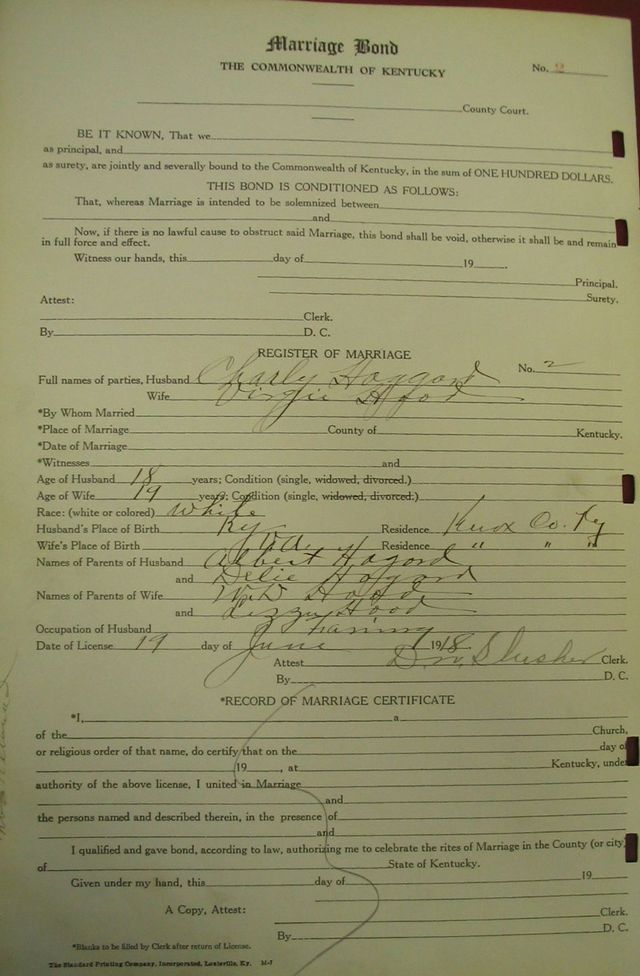 Marriage Bond
THE COMMONWEALTH OF KENTUCKY
No. 2
County Court.
BE IT KNOWN, That we
as principal, and
as surety, are jointly and severally bound to the Commonwealth of Kentucky, in the sum of ONE HUNDRED DOLLARS.
THIS BOND IS CONDITIONED AS FOLLOWS:
That, whereas Marriage is intended to be solemnized between
and
Now, if there is no lawful cause to obstruct said Marriage, this bond shall be void, otherwise it shall be and remain
in full force and effect.
Witness our hands, this day of 19 .
Principal.
Attest: Surety.
Clerk.
By D. C.
REGISTER OF MARRIAGE
No. 2
Full names of parties, Husband Charly Hoggard
Wife Virgie
*By Whom Married
*Place of Marriage County of Kentucky.
*Date of Marriage
*Witnesses and
Age of Husband 18 years; Condition (single, widowed, divorced.)
Age of Wife 19 years; Condition (single, widowed, divorced.)
Race: (white or colored) White
Husband's Place of Birth Ky Residence Knox Co. Ky
Wife's Place of Birth Residence " " "
Names of Parents of Husband Albert Hogard
and Delie Hoggard
Names of Parents of Wife W.D. Hood
and Lizzy Hood
Occupation of Husband Farming
Date of License 19 day of June 1918
Attest D.M. Slusher Clerk.
By D. C.
*RECORD OF MARRIAGE CERTIFICATE
*I, a
of the Church,
or religious order of that name, do certify that on the day of
19 , at Kentucky, under
authority of the above license, I united in Marriage
and
the persons named and described therein, in the presence of
and
I qualified and gave bond, according to law, authorizing me to celebrate the rites of Marriage in the County (or city)
of State of Kentucky.
Given under my hand, this day of 19
A Copy, Attest: Clerk.
By D. C.
*Blanks to be filled by Clerk after return of License.
The Standard Printing Company, Incorporated, Louisville, Ky. M-7